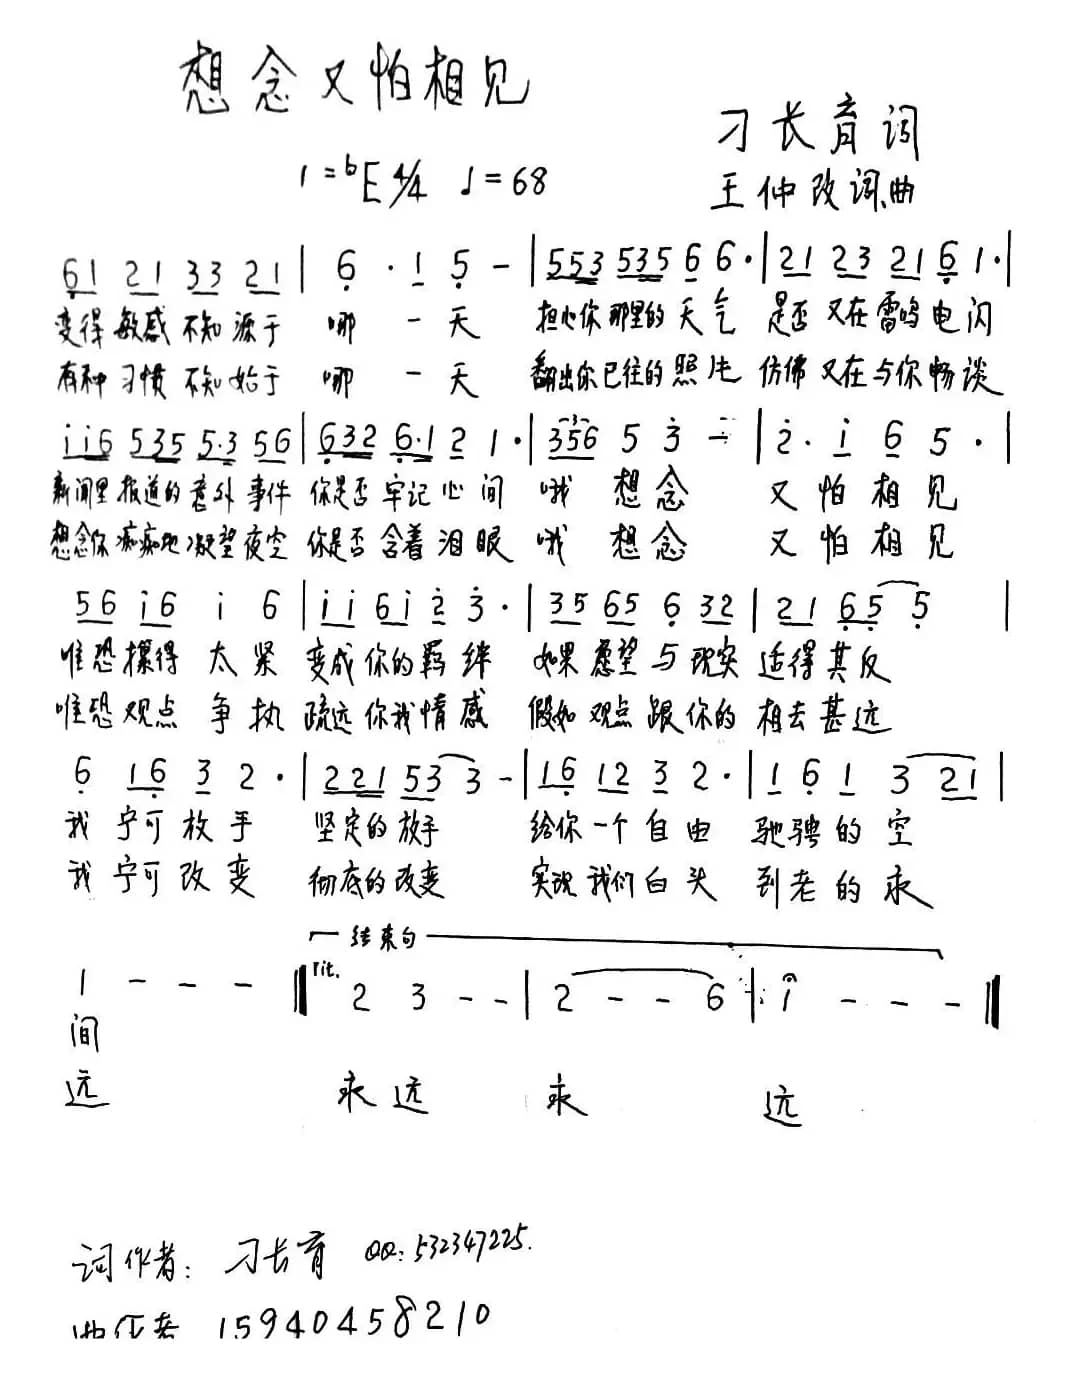 想念又怕相见
刁长育词
1=bE 4/4 ♩=68
王仲改词、曲
61 21 33 21 | 6 · 1 5 - | 553 535 6 6· | 21 23 21 6 1· |
变得敏感不知源于 哪一天 担心你那里的天气 是否又在雷鸣电闪
有种习惯不知始于 哪一天 翻出你已往的照片 仿佛又在与你畅谈
i i 6 535 5·3 56 | 632 6·1 2 1· | 356 5 3 - | 2· i 6 5 · |
新闻里报道的意外事件 你是否牢记心间 哦 想念 又怕相见
想念你痴痴地凝望夜空 你是否含着泪眼 哦 想念 又怕相见
56 i6 i 6 | i i 6 i 2 3· | 35 65 6 32 | 21 65 5 |
唯恐攥得太紧 变成你的羁绊 如果愿望与现实 适得其反
唯恐观点争执 疏远你我情感 假如观点跟你的 相去甚远
6 16 3 2 · | 221 53 3 - | 16 12 3 2· | 1 6 1 3 21 |
我宁可放手 坚定的放手 给你一个自由 驰骋的空
我宁可改变 彻底的改变 实现我们白头 到老的永
结束句
1 - - - ‖ rit. 2 3 - - | 2 - - 6 | i - - - ‖
间
远 永远 永 远
词作者: 刁长育 QQ: 532347225.
曲作者 15940458210